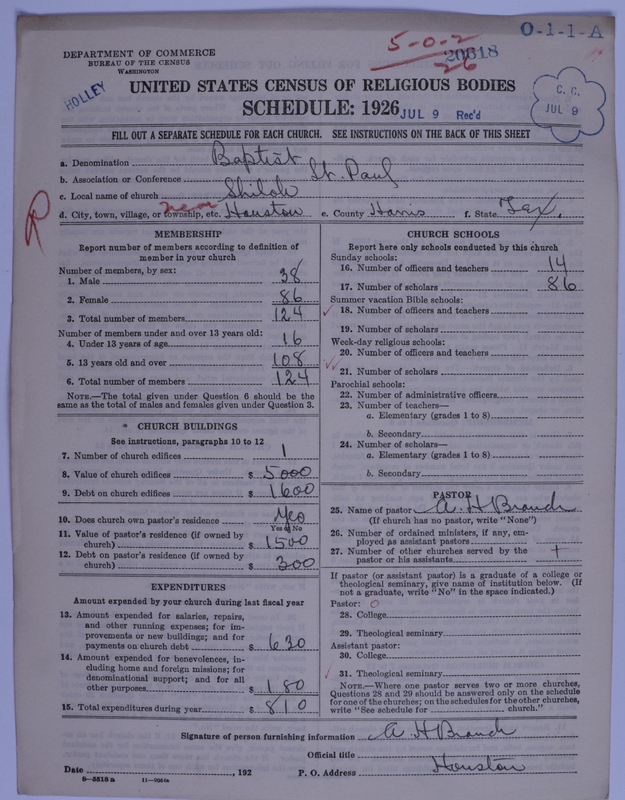 O-1-1-A
5-0-2
20618
26
DEPARTMENT OF COMMERCE
BUREAU OF THE CENSUS
WASHINGTON
HOLLEY
UNITED STATES CENSUS OF RELIGIOUS BODIES
SCHEDULE: 1926
JUL 9 Rec'd
C. C.
JUL 9
FILL OUT A SEPARATE SCHEDULE FOR EACH CHURCH. SEE INSTRUCTIONS ON THE BACK OF THIS SHEET
a. Denomination Baptist
b. Association or Conference St. Paul
c. Local name of church Shiloh
d. City, town, village, or township, etc. near Houston e. County Harris f. State Tex.
MEMBERSHIP
Report number of members according to definition of
member in your church
Number of members, by sex:
1. Male 38
2. Female 86
3. Total number of members 124
Number of members under and over 13 years old:
4. Under 13 years of age 16
5. 13 years old and over 108
6. Total number of members 124
NOTE.—The total given under Question 6 should be
same as the total of males and females given under Question 3.
* CHURCH BUILDINGS
See instructions, paragraphs 10 to 12
7. Number of church edifices 1
8. Value of church edifices $ 5000
9. Debt on church edifices $ 1600
10. Does church own pastor's residence Yes
Yes or No
11. Value of pastor's residence (if owned by
church) $ 1500
12. Debt on pastor's residence (if owned by
church) $ 300
EXPENDITURES
Amount expended by your church during last fiscal year
13. Amount expended for salaries, repairs,
and other running expenses; for im-
provements or new buildings; and for
payments on church debt $ 630
14. Amount expended for benevolences, in-
cluding home and foreign missions; for
denominational support; and for all
other purposes $ 180
15. Total expenditures during year $ 810
CHURCH SCHOOLS
Report here only schools conducted by this church
Sunday schools:
16. Number of officers and teachers 14
17. Number of scholars 86
Summer vacation Bible schools:
18. Number of officers and teachers
19. Number of scholars
Week-day religious schools:
20. Number of officers and teachers
21. Number of scholars
Parochial schools:
22. Number of administrative officers
23. Number of teachers—
a. Elementary (grades 1 to 8)
b. Secondary
24. Number of scholars—
a. Elementary (grades 1 to 8)
b. Secondary
PASTOR
25. Name of pastor A. H Branch
(If church has no pastor, write "None")
26. Number of ordained ministers, if any, em-
ployed as assistant pastors
27. Number of other churches served by the
pastor or his assistants
If pastor (or assistant pastor) is a graduate of a college or
theological seminary, give name of institution below. (If
not a graduate, write "No" in the space indicated.)
Pastor: O
28. College
29. Theological seminary
Assistant pastor:
30. College
31. Theological seminary
NOTE.—Where one pastor serves two or more churches,
Questions 28 and 29 should be answered only on the schedule
for one of the churches; on the schedules for the other churches,
write "See schedule for church."
Signature of person furnishing information A. H Branch
Official title
Date , 192 P. O. Address Houston
8—5518 a 11—9264a